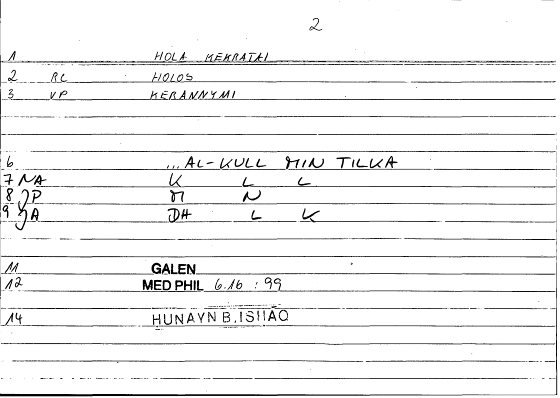 2
1 HOLA KEKRATAI
2 RC HOLOS
3 VP KERANNYMI
6 ...AL-KULL MIN TILKA
7 NA K L L
8 P M N
9 A DH L K
11 GALEN
12 MED PHIL 6.16 : 99
14 ḤUNAYN B. ISḤĀQ